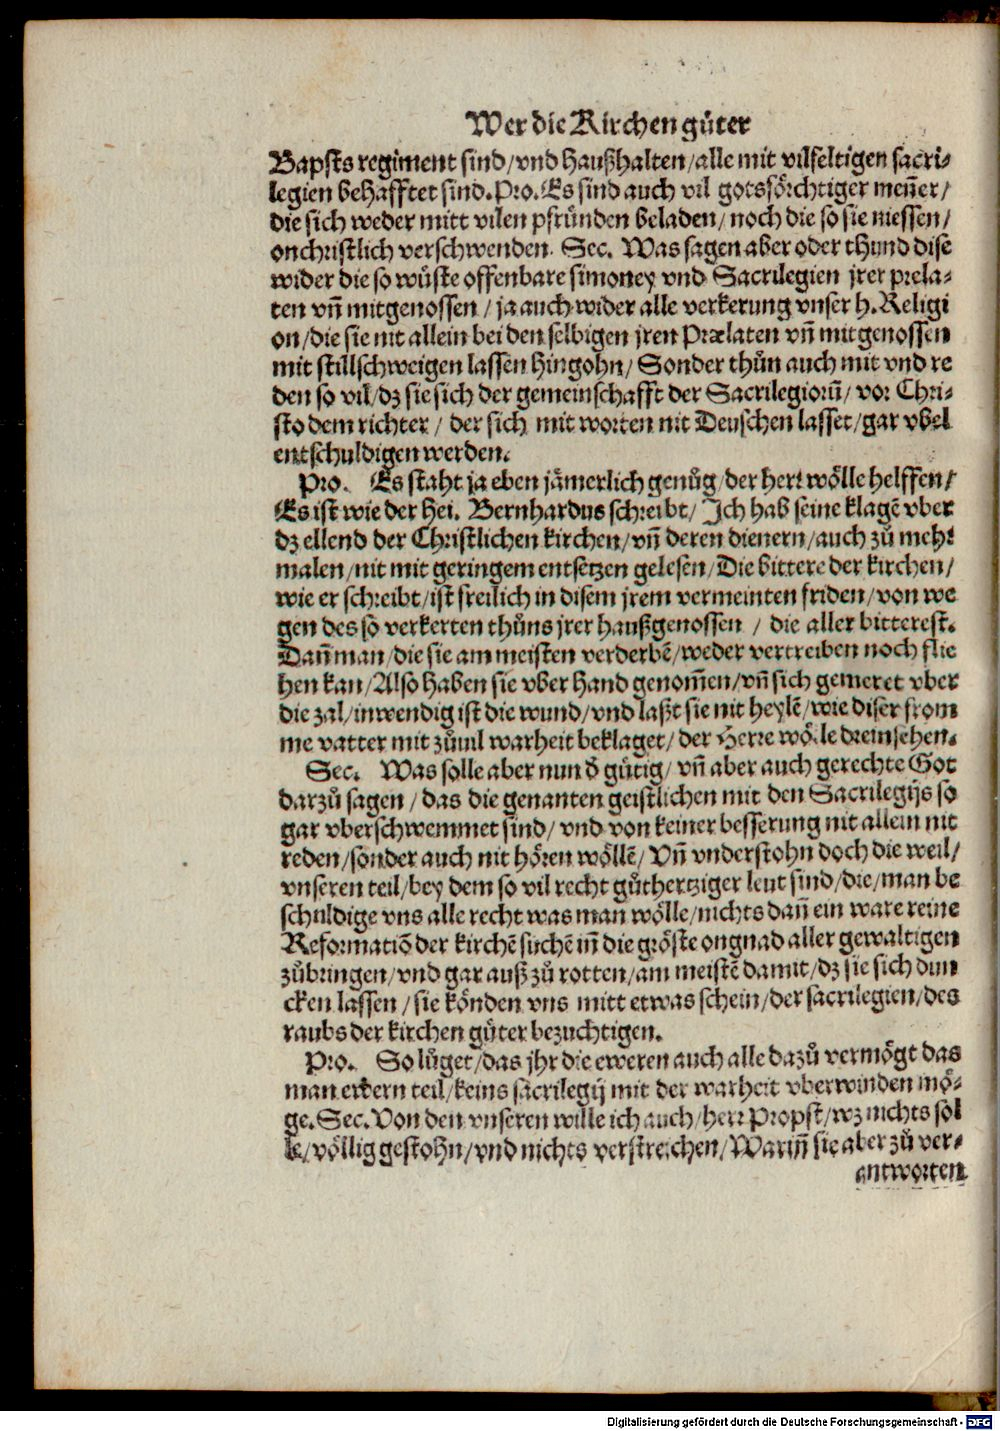 Wer die Kirchen guͤter
Bapsts regiment sind/vnd haußhalten/alle mit vilfeltigen sacri-
legien behafftet sind. Pro. Es sind auch vil gotsfoͤrchtiger meñer/
die sich weder mitt vilen pfruͤnden beladen/noch die so sie niessen/
onchristlich verschwenden. Sec. Was sagen aber oder thund dise
wider die so wuͤste offenbare simoney vnd Sacrilegien jrer prela-
ten vñ mitgenossen/ja auch wider alle verkerung vnser h. Religi
on/die sie nit allein bei den selbigen jren Prælaten vñ mitgenossen
mit stillschweigen lassen hingohn/Sonder thuͦn auch mit vnd re
den so vil/dz sie sich der gemeinschafft der Sacrilegiorũ/vor Chri-
sto dem richter/der sich mit worten nit Deuschen lasset/gar vbel
entschuldigen werden.
Pro. Es staht ja eben jaͤmerlich genuͦg/der herr woͤlle helffen/
Es ist wie der Hei. Bernhardus schreibt/Ich hab seine klagẽ vber
dz ellend der Christlichen kirchen/vñ deren dienern/auch zuͦ mehr
malen/nit mit geringem entsetzen gelesen/Die bittere der kirchen/
wie er schreibt/ist freilich in disem jrem vermeinten friden/von we
gen des so verkerten thuͦns jrer haußgenossen/die aller bitterest.
Dañ man/die sie am meisten verderbẽ/weder vertreiben noch flie
hen kan/Also haben sie vber hand genom̃en/vñ sich gemeret vber
die zal/inwendig ist die wund/vnd laßt sie nit heylẽ/wie diser from
me vatter mit zuͦuil warheit beklaget/der Herre woͤlle dreinsehen.
Sec. Was solle aber nun d̕ guͤtig/vñ aber auch gerechte Got
darzuͦ sagen/das die genanten geistlichen mit den Sacrilegijs so
gar vberschwemmet sind/vnd von keiner besserung nit allein nit
reden/sonder auch nit hoͤren woͤllẽ/Vñ vnderstohn doch die weil/
vnseren teil/bey dem so vil recht guͦthertziger leut sind/die/man be
schuldige vns alle recht was man woͤlle/nichts dañ ein ware reine
Reformatiõ der kirchẽ suchẽ iñ die groͤste ongnad aller gewaltigen
zuͦbringen/vnd gar auß zuͦ rotten/am meistẽ damit/dz sie sich dun
cken lassen/sie koͤnden vns mitt etwas schein/der sacrilegien/des
raubs der kirchen guͤter bezuchtigen.
Pro. So luͦget/das jhr die eweren auch alle dazuͦ vermoͤgt das
man ewern teil/keins sacrilegij mit der warheit vberwinden moͤ-
ge. Sec. Von den vnseren wille ich auch/herr Propst/wz nichts sol
le/voͤllig gestohn/vnd nichts verstreichen/Warĩn sie aber zuͦ ver-
antworten
Digitalisierung gefördert durch die Deutsche Forschungsgemeinschaft - DFG